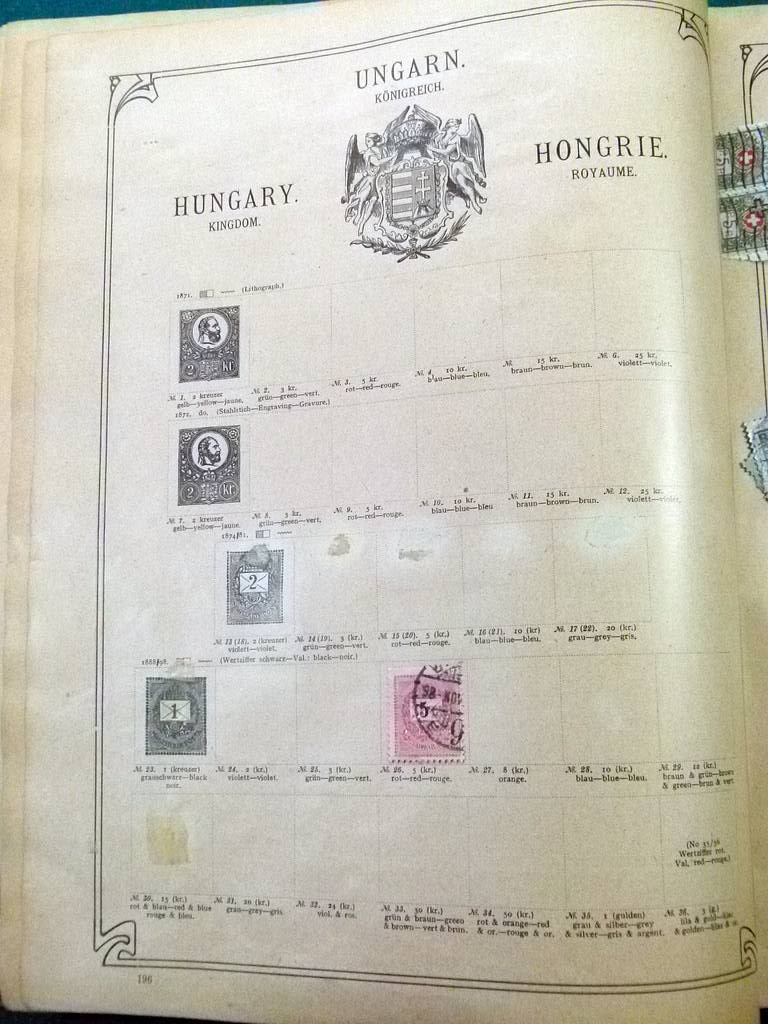 UNGARN.
KÖNIGREICH.
HUNGARY.
KINGDOM.
HONGRIE.
ROYAUME.
1871. (Lithograph.)
2 Kr
№. 1. 2 kreuzer №. 2. 3 kr. №. 3. 5 kr. №. 4. 10 kr. №. 15 kr. №. 6. 25 kr.
gelb—yellow—jaune. grün—green—vert. rot—red—rouge. blau—blue—bleu. braun—brown—brun. violett—violet.
1871. do. (Stahlstich—Engraving—Gravure.)
2 Kr
№. 7. 2 kreuzer №. 8. 3 kr. №. 9. 5 kr. №. 10. 10 kr. №. 11. 15 kr. №. 12. 25 kr.
gelb—yellow—jaune. grün—green—vert. rot—red—rouge. blau—blue—bleu braun—brown—brun. violett—violet.
1874/81.
2
№. 13 (18). 2 (kreuzer) №. 14 (19). 3 (kr.) №. 15 (20). 5 (kr.) №. 16 (21). 10 (kr) №. 17 (22). 20 (kr.)
violett—violet. grün—green—vert. rot—red—rouge. blau—blue—bleu. grau—grey—gris.
1888/98. (Wertziffer schwarz—Val.: black—noir.)
1
98 NOV
5
№. 23. 1 (kreuzer) №. 24. 2 (kr.) №. 25. 3 (kr.) №. 26. 5 (kr.) №. 27. 8 (kr.) №. 28. 10 (kr.) №. 29. 12 (kr.)
grauschwarz—black violett—violet. grün—green—vert. rot—red—rouge. orange. blau—blue—bleu. braun & grün—brown
noir. & green—brun & vert
(No 35/36
Wertziffer rot.
Val, red—rouge.)
№. 30. 15 (kr.) №. 31. 20 (kr.) №. 32. 24 (kr.) №. 33. 30 (kr.) №. 34. 50 (kr.) №. 35. 1 (gulden) №. 36. 3 (g.)
rot & blau—red & blue grau—grey—gris viol. & rot. grün & braun—green rot & orange—red grau & silber—grey lila & gold—lilac
rouge & bleu. & brown—vert & brun. & or.—rouge & or. & silver—gris & argent. & golden—lilas & or
196